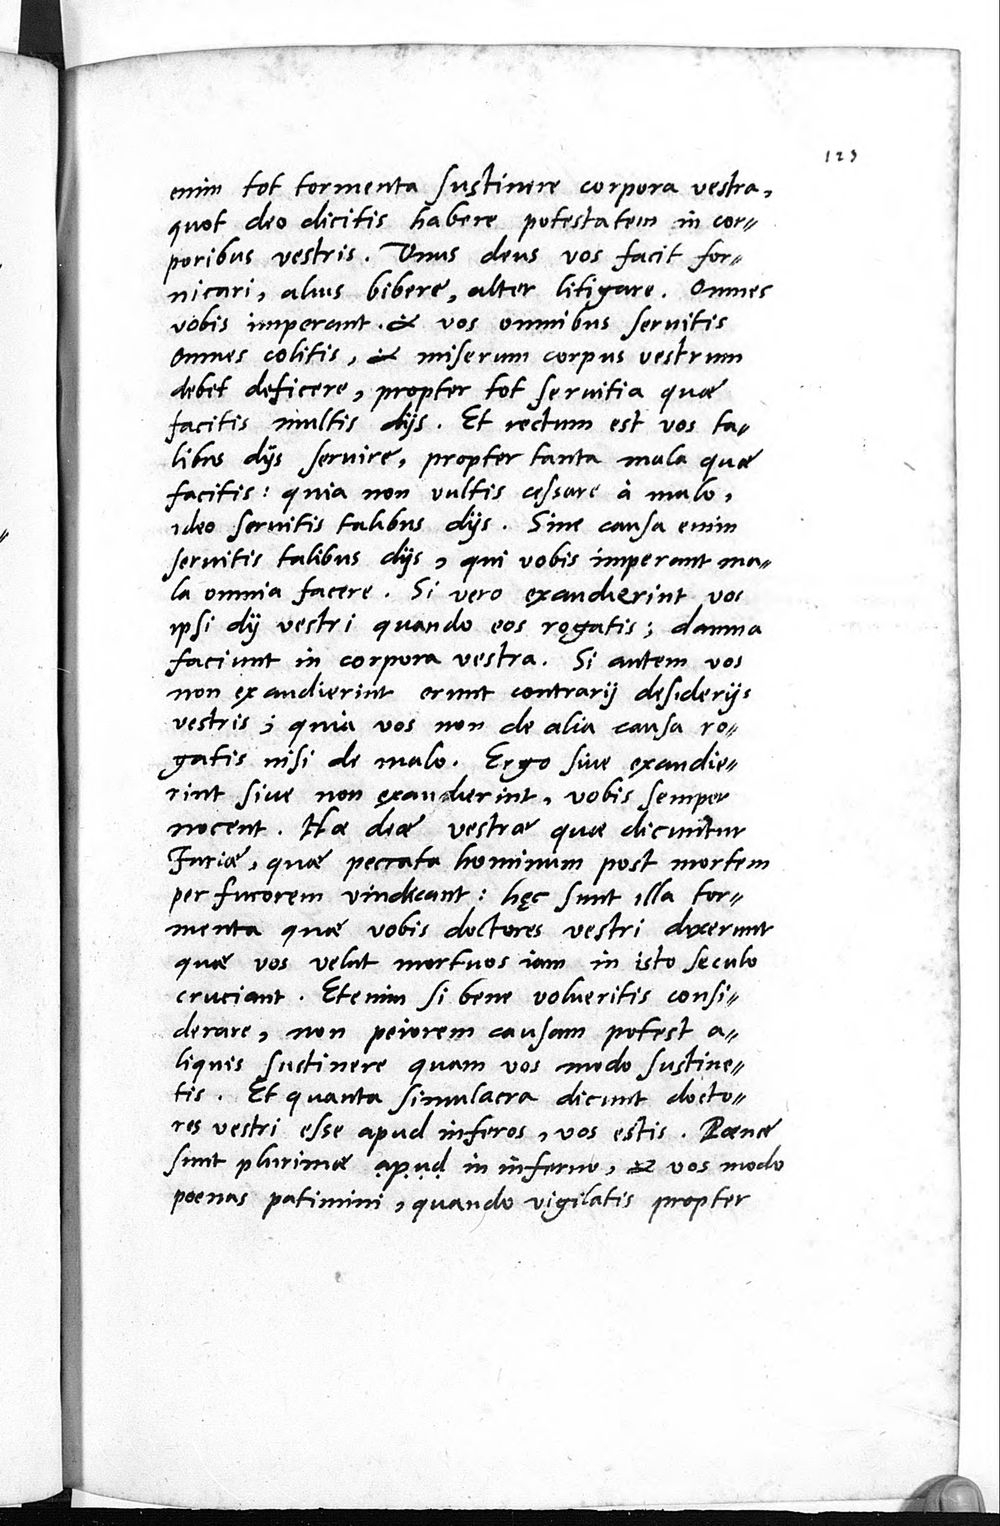 123
enim tot tormenta sustinere corpora vestra,
quot deo dicitis habere potestatem in cor=
poribus vestris. Unus deus vos facit for=
nicari, alius bibere, alter litigare. Omnes
vobis imperant. & vos omnibus seruitis
Omnes colitis, & miserum corpus vestrum
debet deficere, propter tot seruitia quæ
facitis multis dijs. Et rectum est vos ta=
libus dijs seruire, propter tanta mala quæ
facitis: quia non vultis cessare à malo,
ideo seruitis talibus dijs. Sine causa enim
seruitis talibus dijs, qui vobis imperant ma=
la omnia facere. Si vero exaudierint vos
ipsi dij vestri quando eos rogatis; damna
faciunt in corpora vestra. Si autem vos
non exaudierint erunt contrarij desiderijs
vestris; quia vos non de alia causa ro=
gatis nisi de malo. Ergo siue exaudie=
rint siue non exaudierint, vobis semper
nocent. Hæ deæ vestræ quæ dicuntur
Furiæ, quæ peccata hominum post mortem
per furorem vindicant: hęc sunt illa tor=
menta quæ vobis doctores vestri dixerunt
quæ vos velut mortuos iam in isto seculo
cruciant. Etenim si bene volueritis consi=
derare, non peiorem causam potest a=
liquis sustinere quam vos modo sustine=
tis. Et quanta simulacra dicunt docto=
res vestri esse apud inferos, vos estis. Pœnæ
sunt plurimæ ạpụḍ in inferno, & vos modo
poenas patimini, quando vigilatis propter